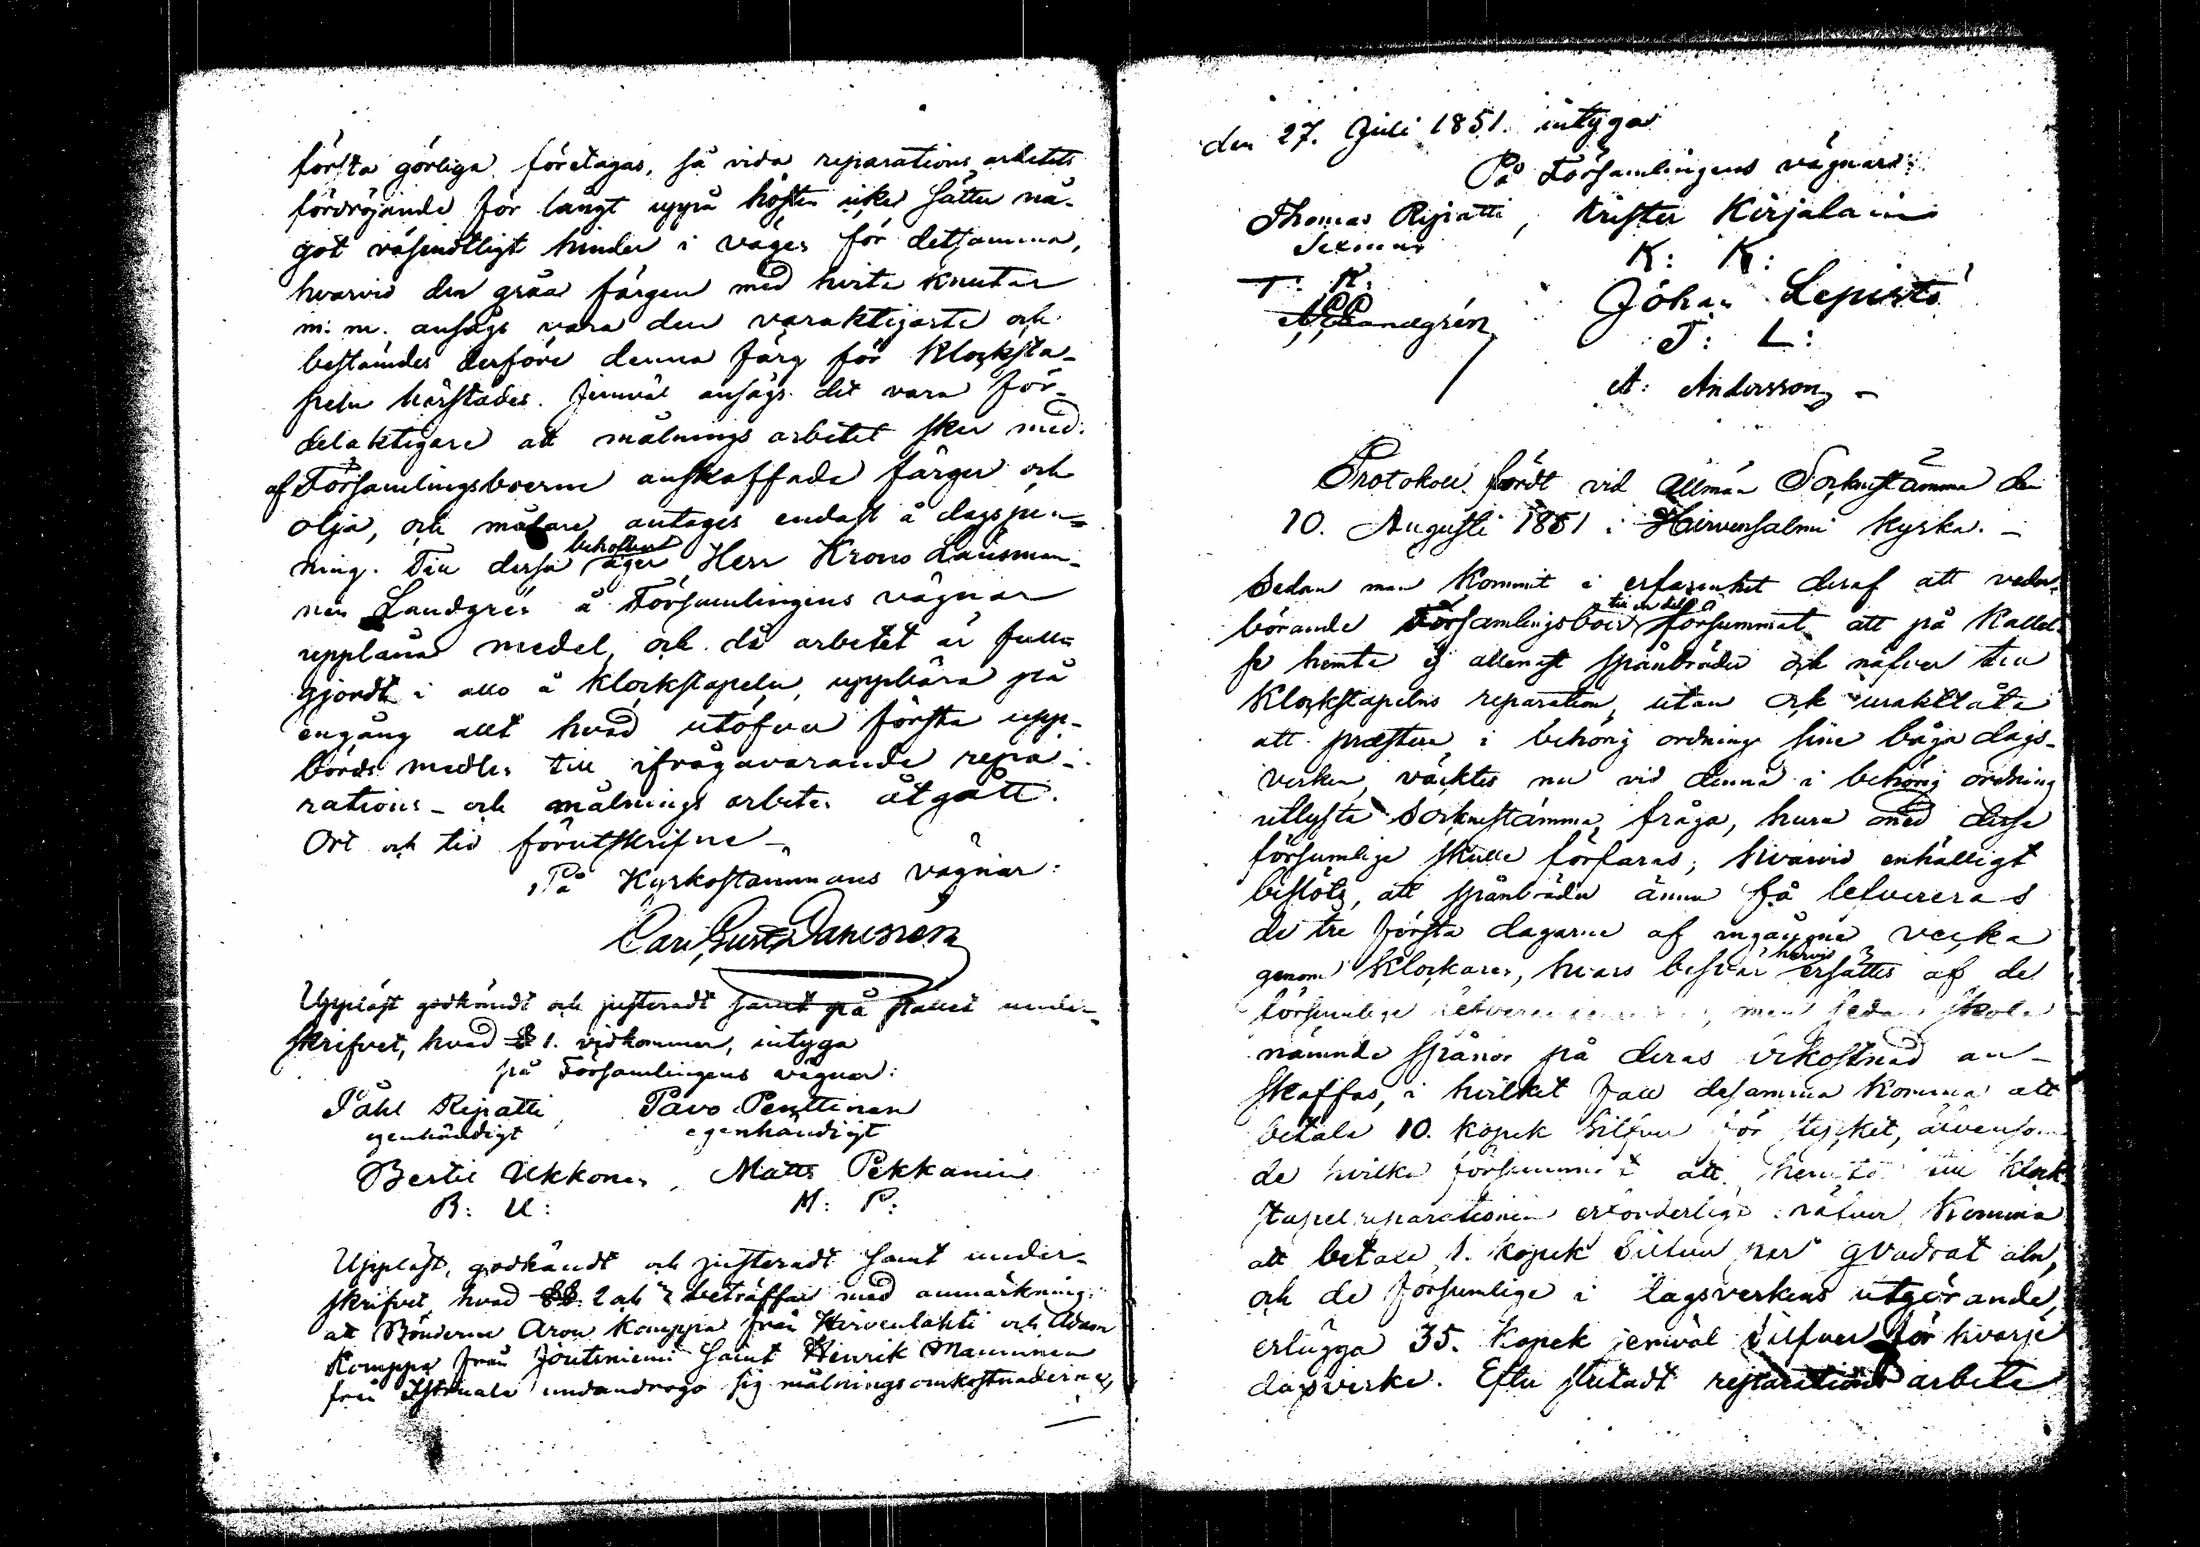 första görliga företagas, så vida reparations arbetets
fördröjande för långt uppå hösten icke sätter nå-
got väsendtligt hinder i vägen för detsamma,
hvarvid den gråa färgen med hvita knutar
m: m. ansågs vara den varaktigaste och
bestämdes derföre denna färg för klocksta-
peln härstädes. Jemväl ansågs det vara för-
delaktigare att målnings arbetet sker med
af Församlingsboerne anskaffade färger och
olja, och målare antages endast å dagspen-
ning. Till dessa behofver äger Herr Krono Länsman-
nen Landgrén å Församlingens vägnar
upplåna medel, och då arbetet är full-
gjordt i allo å klockstapeln, uppbära på
engång allt hvad utöfver första upp-
börds medlen till ifrågavarande repa-
rations- och målnings arbeten åtgått.
Ort och tid förutskrifne
På Kyrkostämmans vägnar:
Carl Gust. Danesrén
Uppläst godkändt och justeradt samt på stället under-
skrifvet, hvad § 1. vidkommer, intyga
på Församlingens vägnar:
Påhl Ripatti, Pavo Penttinen
egenhändigt egenhändigt
Bertil Ukkonen, Matts Pekkanen
B: U: M: P:
Uppläst, godkändt och justeradt samt under-
skrifvet hvad §§. 2 och 3 beträffar med anmärkning:
att Bönderne Aron Komppa från Hirvenlahti och Adam
Komppa från Joutsniemi samt Henrik Manninen
från undandrogo sig målnings omkostnaderne,
den 27. Juli 1851. intyga
På Församlingens vägnar:
Thomas Ripatti, Krister Kirjalain
Sexman K: K:
T: R:
Landgrén Johan Lepistö
J: L:
A: Andersson
Protokoll fördt vid Allmän Sockenstämma den
10. Augusti 1851 i Hirvensalmi kyrka.
Sedan man kommit i erfarenhet deraf att veder-
börande Församlingsboer till en del försummat att på kallel-
se hemta ej allenast spånbräder och näfver till
Klockstapelns reparation, utan och uraktlåta
att prestera i behörig ordning sine båga dags-
verken, väcktes nu vid denna i behörig ordning
utlyste Sockenstämma, fråga, huru med desse
försumlige skulle förfaras; hvarvid enhälligt
beslöts, att spånbräder ännu få lefvereras
de tre första dagarne af ingående vecka
genom Klockaren, hvars besvär härvid ersättes af de
försumlige men sedan skola
nämnde spånor på deras bekostnad an-
skaffas, i hvilket fall desamma komma att
betala 10. kopek Silfver för stycket, äfvensom
de hvilka försummat att hemta till klock-
stapel reparationen erforderlige näfver komma
att betala 1. kopek Silfver per qvadrat aln,
och de försumlige i dagsverkens utgörande,
erlägga 35. kopek jemväl Silfver för hvarje
dagsverke. Efter slutadt reparations arbete